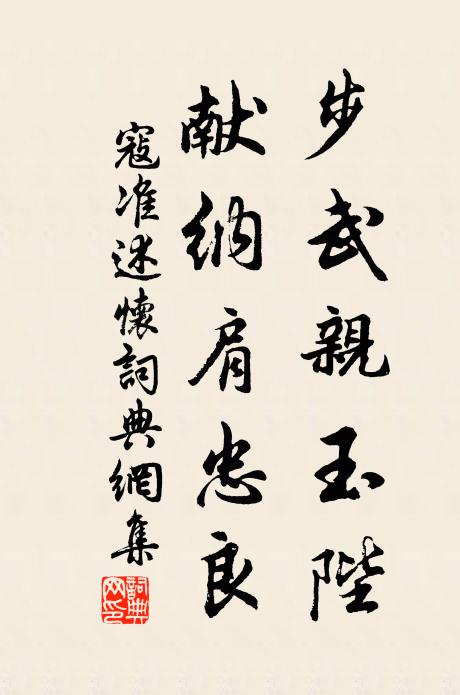 步武親玉陛
献納肩忠良
寇准述懷詞典網集
詞典网印